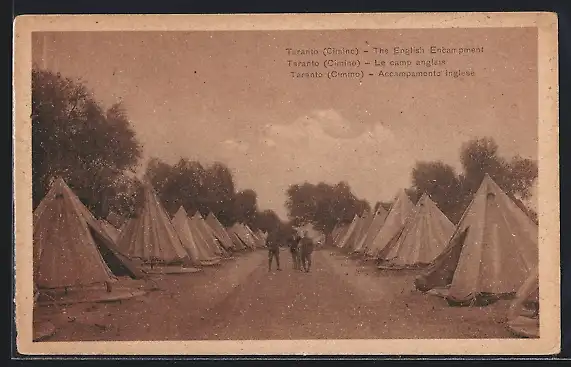 Taranto (Cimino) – The English Encampment
Taranto (Cimino) – Le camp anglais
Taranto (Cimino) – Accampamento inglese